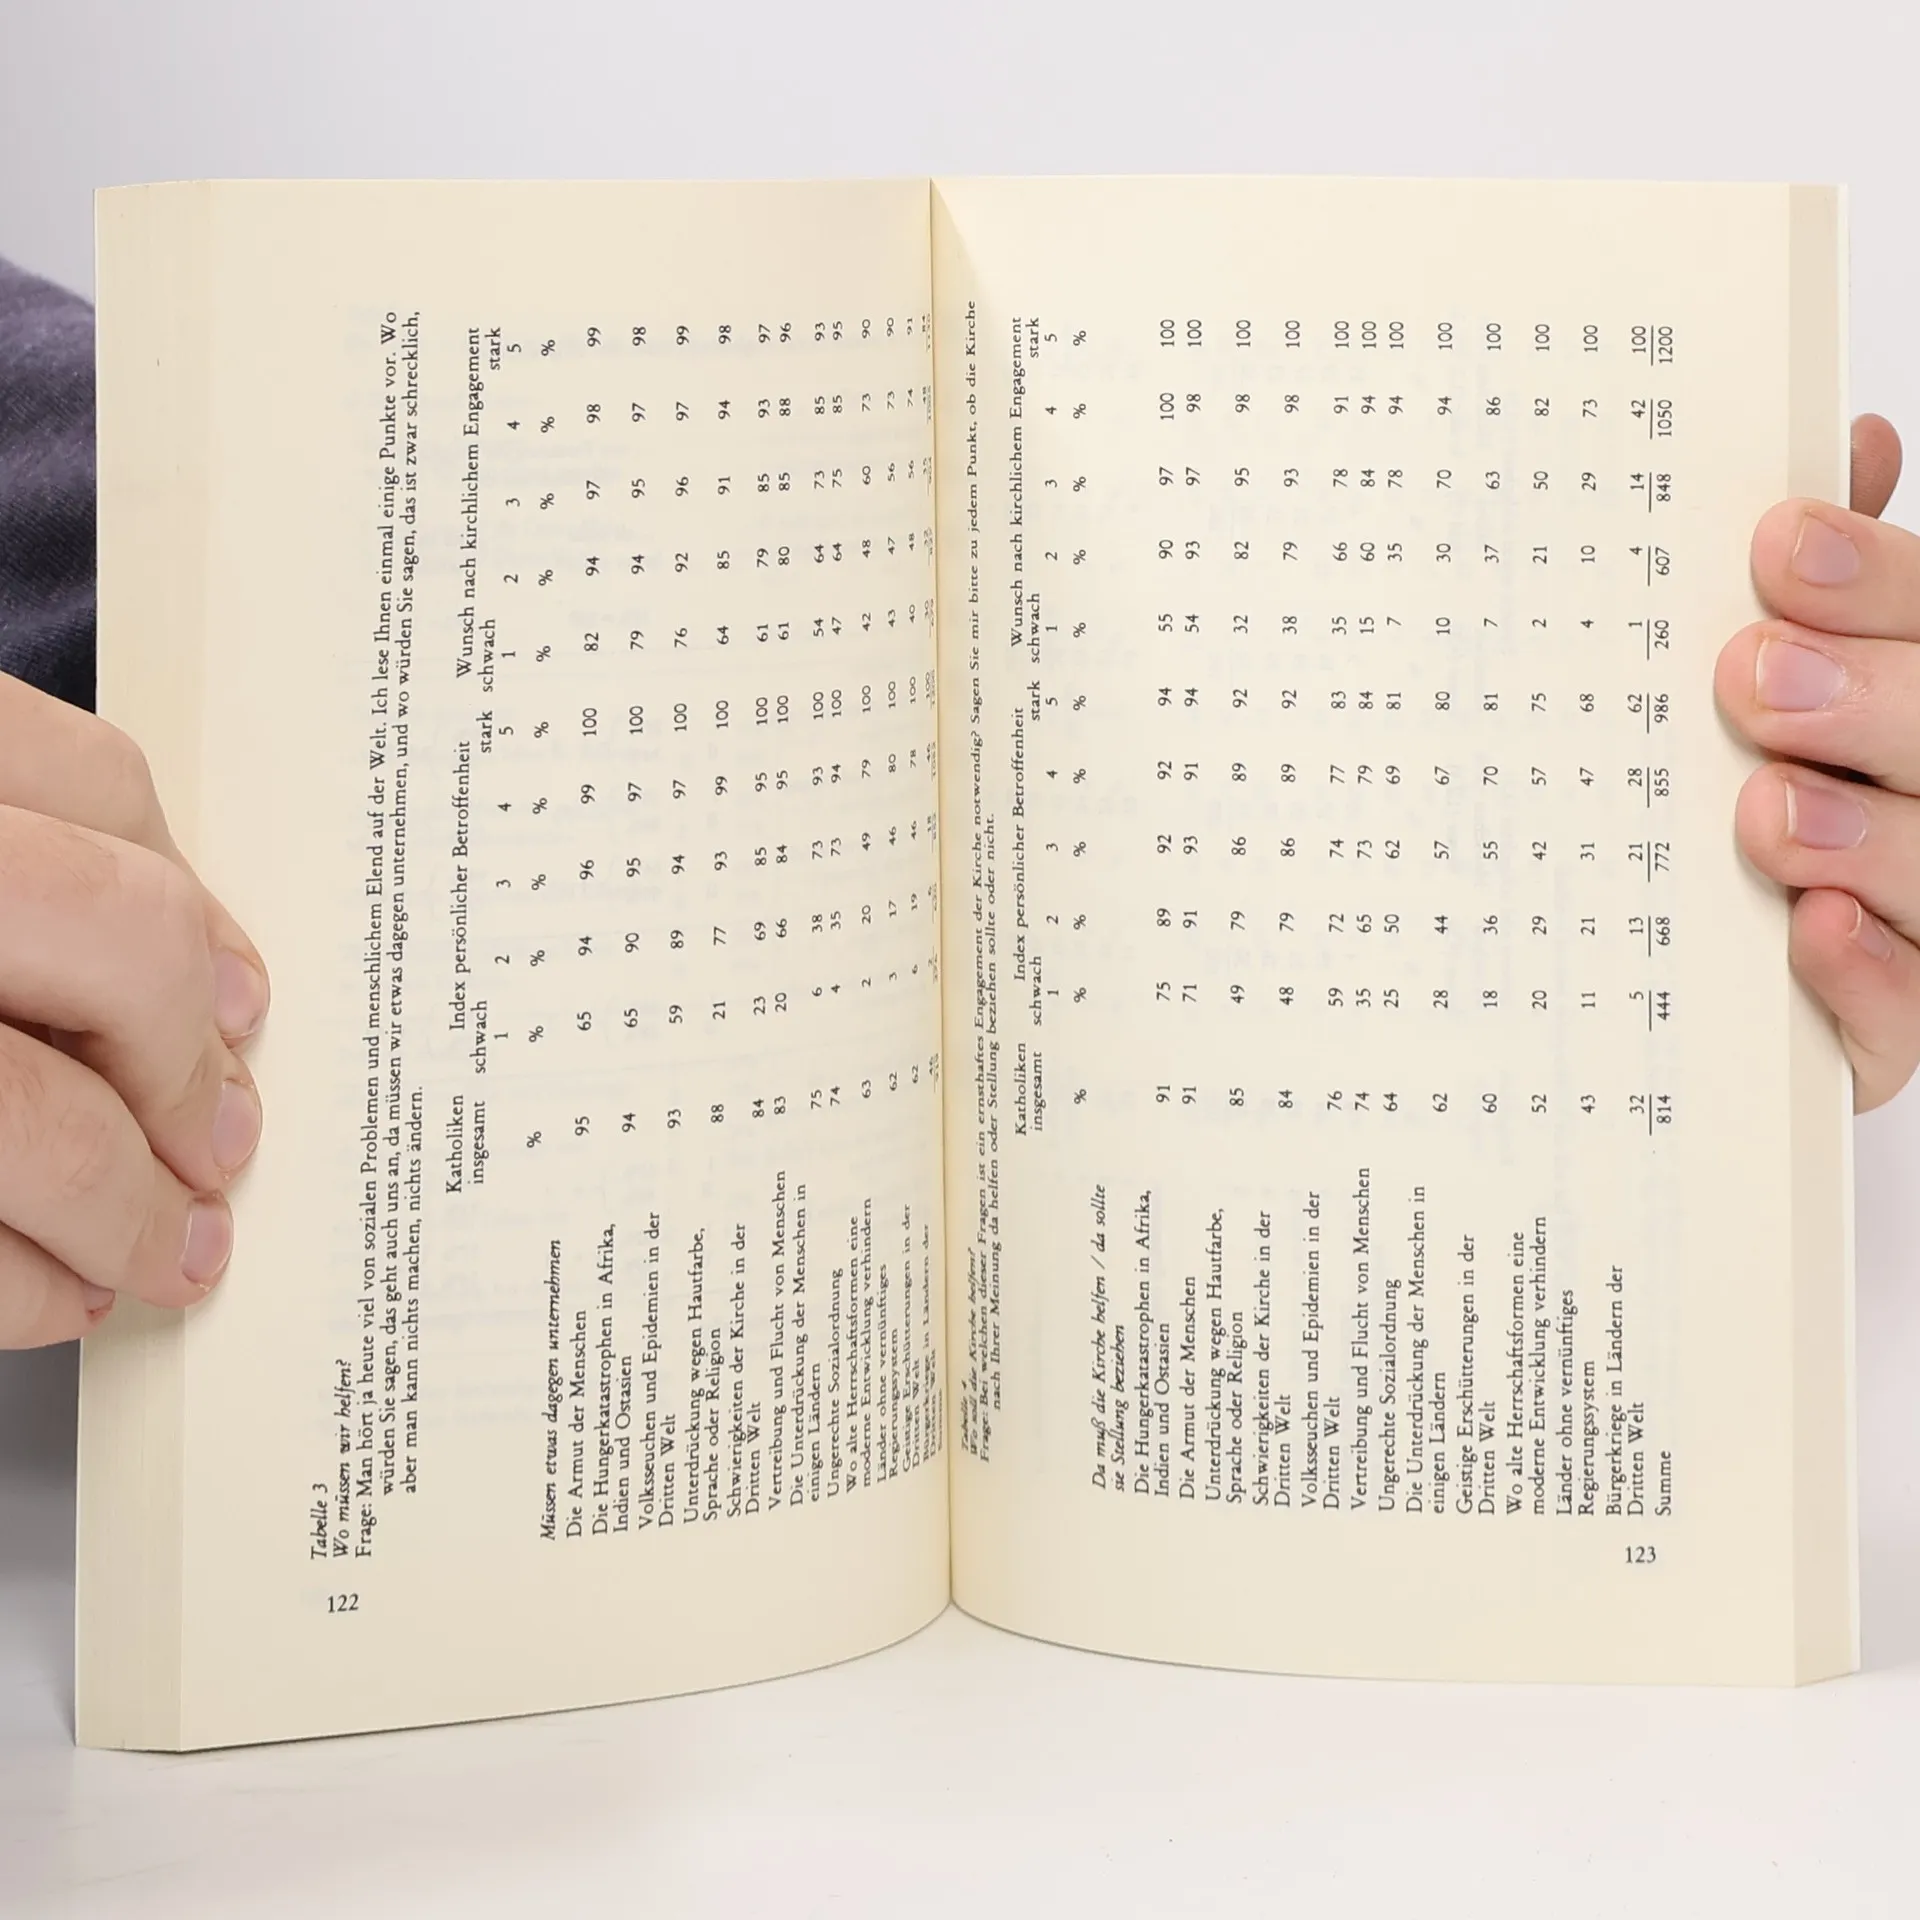 Tabelle 3
Wo müssen wir helfen?
Frage: Man hört ja heute viel von sozialen Problemen und menschlichem Elend auf der Welt. Ich lese Ihnen einmal einige Punkte vor. Wo
würden Sie sagen, das geht auch uns an, da müssen wir etwas dagegen unternehmen, und wo würden Sie sagen, das ist zwar schrecklich,
aber man kann nichts machen, nichts ändern.
Katholiken Index persönlicher Betroffenheit Wunsch nach kirchlichem Engagement
insgesamt schwach stark schwach stark
1 2 3 4 5 1 2 3 4 5
% % % % % % % % % % %
Müssen etwas dagegen unternehmen
Die Armut der Menschen 95 65 94 96 99 100 82 94 97 98 99
Die Hungerkatastrophen in Afrika,
Indien und Ostasien 94 65 90 95 97 100 79 94 95 97 98
Volksseuchen und Epidemien in der
Dritten Welt 93 59 89 94 97 100 76 92 96 97 99
Unterdrückung wegen Hautfarbe,
Sprache oder Religion 88 21 77 93 99 100 64 85 91 94 98
Schwierigkeiten der Kirche in der
Dritten Welt 84 23 69 85 95 100 61 79 85 93 97
Vertreibung und Flucht von Menschen 83 20 66 84 95 100 61 80 85 88 96
Die Unterdrückung der Menschen in
einigen Ländern 75 6 38 73 93 100 54 64 73 85 93
Ungerechte Sozialordnung 74 4 35 73 94 100 47 64 75 85 95
Wo alte Herrschaftsformen eine
moderne Entwicklung verhindern 63 2 20 49 79 100 42 48 60 73 90
Länder ohne vernünftiges
Regierungssystem 62 3 17 46 80 100 43 47 56 73 90
Geistige Erschütterungen in der
Dritten Welt 62 6 19 46 78 100 40 48 56 74 91
Bürgerkriege in Ländern der
Dritten Welt
122
Tabelle 4
Wo soll die Kirche helfen?
Frage: Bei welchen dieser Fragen ist ein ernsthaftes Engagement der Kirche notwendig? Sagen Sie mir bitte zu jedem Punkt, ob die Kirche
nach Ihrer Meinung da helfen oder Stellung beziehen sollte oder nicht.
Katholiken Index persönlicher Betroffenheit Wunsch nach kirchlichem Engagement
insgesamt schwach stark schwach stark
1 2 3 4 5 1 2 3 4 5
% % % % % % % % % % %
Da muß die Kirche helfen / da sollte
sie Stellung beziehen
Die Hungerkatastrophen in Afrika,
Indien und Ostasien 91 75 89 92 92 94 55 90 97 100 100
Die Armut der Menschen 91 71 91 93 91 94 54 93 97 98 100
Unterdrückung wegen Hautfarbe,
Sprache oder Religion 85 49 79 86 89 92 32 82 95 98 100
Schwierigkeiten der Kirche in der
Dritten Welt 84 48 79 86 89 92 38 79 93 98 100
Volksseuchen und Epidemien in der
Dritten Welt 76 59 72 74 77 83 35 66 78 91 100
Vertreibung und Flucht von Menschen 74 35 65 73 79 84 15 60 84 94 100
Ungerechte Sozialordnung 64 25 50 62 69 81 7 35 78 94 100
Die Unterdrückung der Menschen in
einigen Ländern 62 28 44 57 67 80 10 30 70 94 100
Geistige Erschütterungen in der
Dritten Welt 60 18 36 55 70 81 7 37 63 86 100
Wo alte Herrschaftsformen eine
moderne Entwicklung verhindern 52 20 29 42 57 75 2 21 50 82 100
Länder ohne vernünftiges
Regierungssystem 43 11 21 31 47 68 4 10 29 73 100
Bürgerkriege in Ländern der
Dritten Welt 32 5 13 21 28 62 1 4 14 42 100
Summe 814 444 668 772 855 986 260 607 848 1050 1200
123